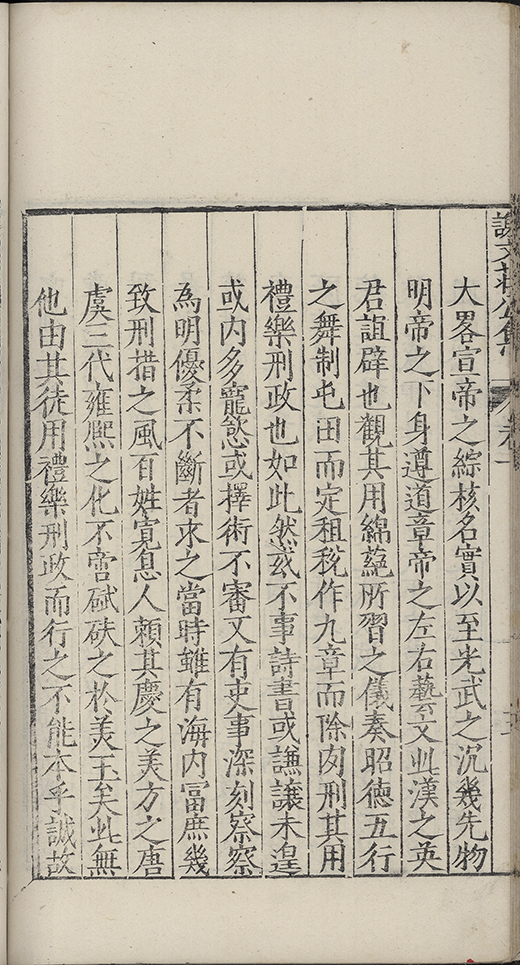 文莊公集
大畧宣帝之綜核名實以至光武之沉幾先物
明帝之下身遵道章帝之左右藝文此漢之英
君誼辟也觀其用綿蕝所習之儀奏昭德五行
之舞制屯田而定租稅作九章而除肉刑其用
禮樂刑政也如此然或不事詩書或謙讓未遑
或内多寵慾或擇術不審又有吏事深刻察察
為明優柔不斷者求之當時雖有海内冨庶幾
致刑措之風百姓寛息人賴其慶之美方之唐
虞三代雍熈之化不啻碔砆之於美玉矣此無
他由其徒用禮樂刑政而行之不能本乎誠故